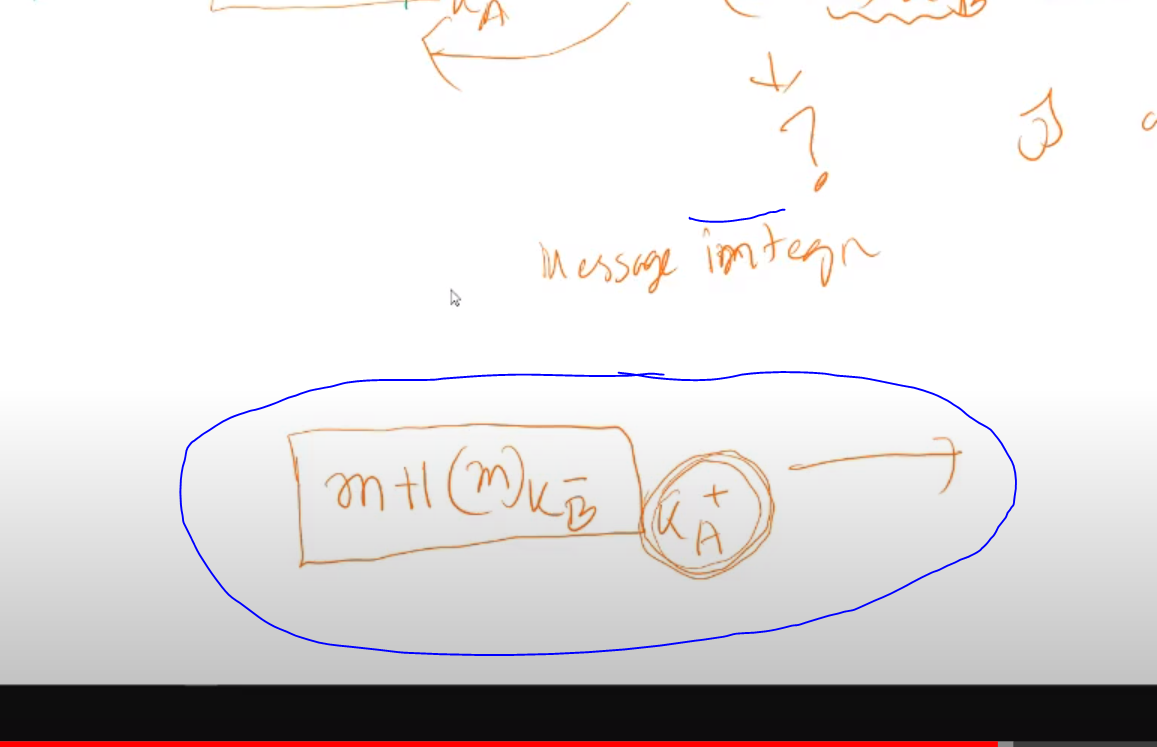 K A
B
?
Message imtegr
m+H(m)K B⁻
K A⁺